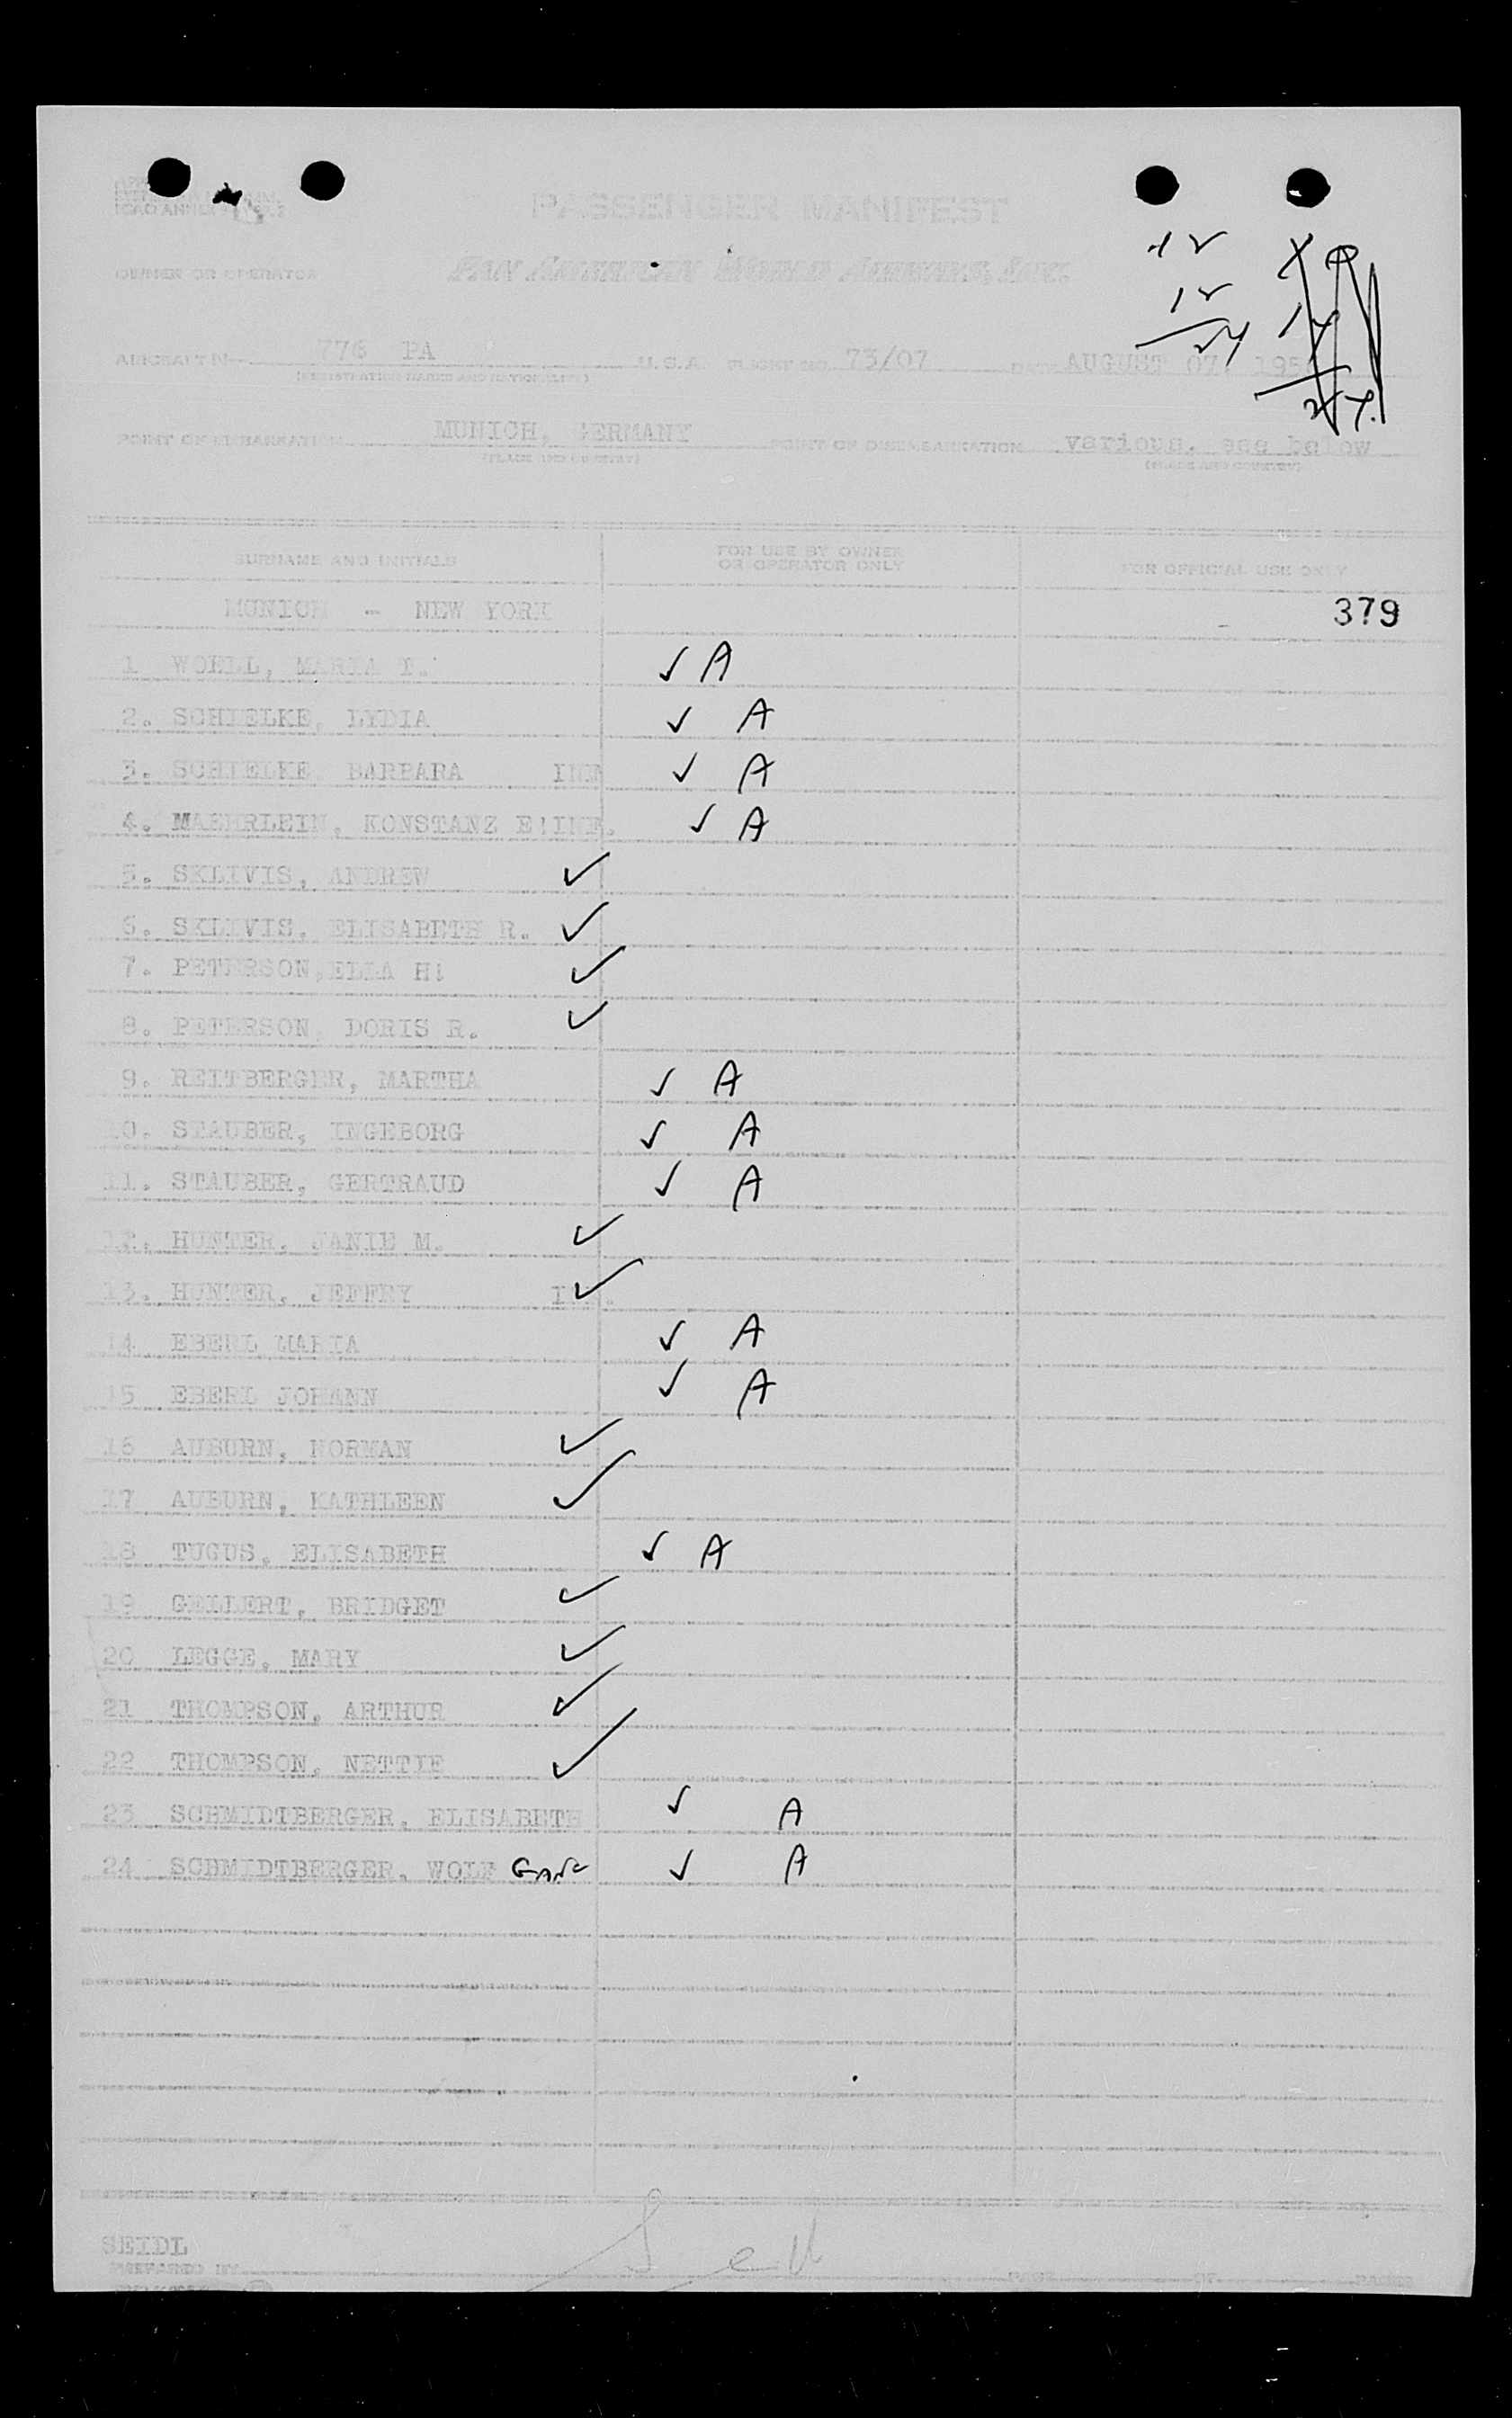 ICAO ANNEX
PASSENGER MANIFEST
OWNER OR OPERATOR PAN AMERICAN WORLD AIRWAYS, INC.
12
12
24
AIRCRAFT 776 PA U.S.A. FLIGHT NO. 73/07 DATE AUGUST 07, 195
(REGISTRATION MARKS AND NATIONALITY)
POINT OF EMBARKATION MUNICH, GERMANY POINT OF DISEMBARKATION various, see below
(PLACE AND COUNTRY) (PLACE AND COUNTRY)
SURNAME AND INITIALS FOR USE BY OWNER OR OPERATOR ONLY FOR OFFICIAL USE ONLY
MUNICH - NEW YORK 379
1 WOELL, MARIA T. ✓ A
2. SCHIELKE, LYDIA ✓ A
3. SCHIELKE BARBARA INF ✓ A
4. MAEHRLEIN, KONSTANZ E!INF. ✓ A
5. SKLIVIS, ANDREW ✓
6. SKLIVIS, ELISABETH R. ✓
7. PETERSON,ELLA H! ✓
8. PETERSON, DORIS R. ✓
9. REITBERGER, MARTHA ✓ A
10. STAUBER, INGEBORG ✓ A
11. STAUBER, GERTRAUD ✓ A
12. HUNTER, JANIE M. ✓
13. HUNTER, JEFFRY INF. ✓
14 EBERL MARIA ✓ A
15 EBERL JOHANN ✓ A
16 AUBURN, NORMAN ✓
17 AUBURN, KATHLEEN ✓
18 TUGUS, ELISABETH ✓ A
19 GELLERT, BRIDGET ✓
20 LEGGE, MARY ✓
21 THOMPSON, ARTHUR ✓
22 THOMPSON, NETTIE ✓
23 SCHMIDTBERGER, ELISABETH ✓ A
24 SCHMIDTBERGER, WOLF GANG ✓ A
SEIDL
PREPARED BY PAGE OF PAGES